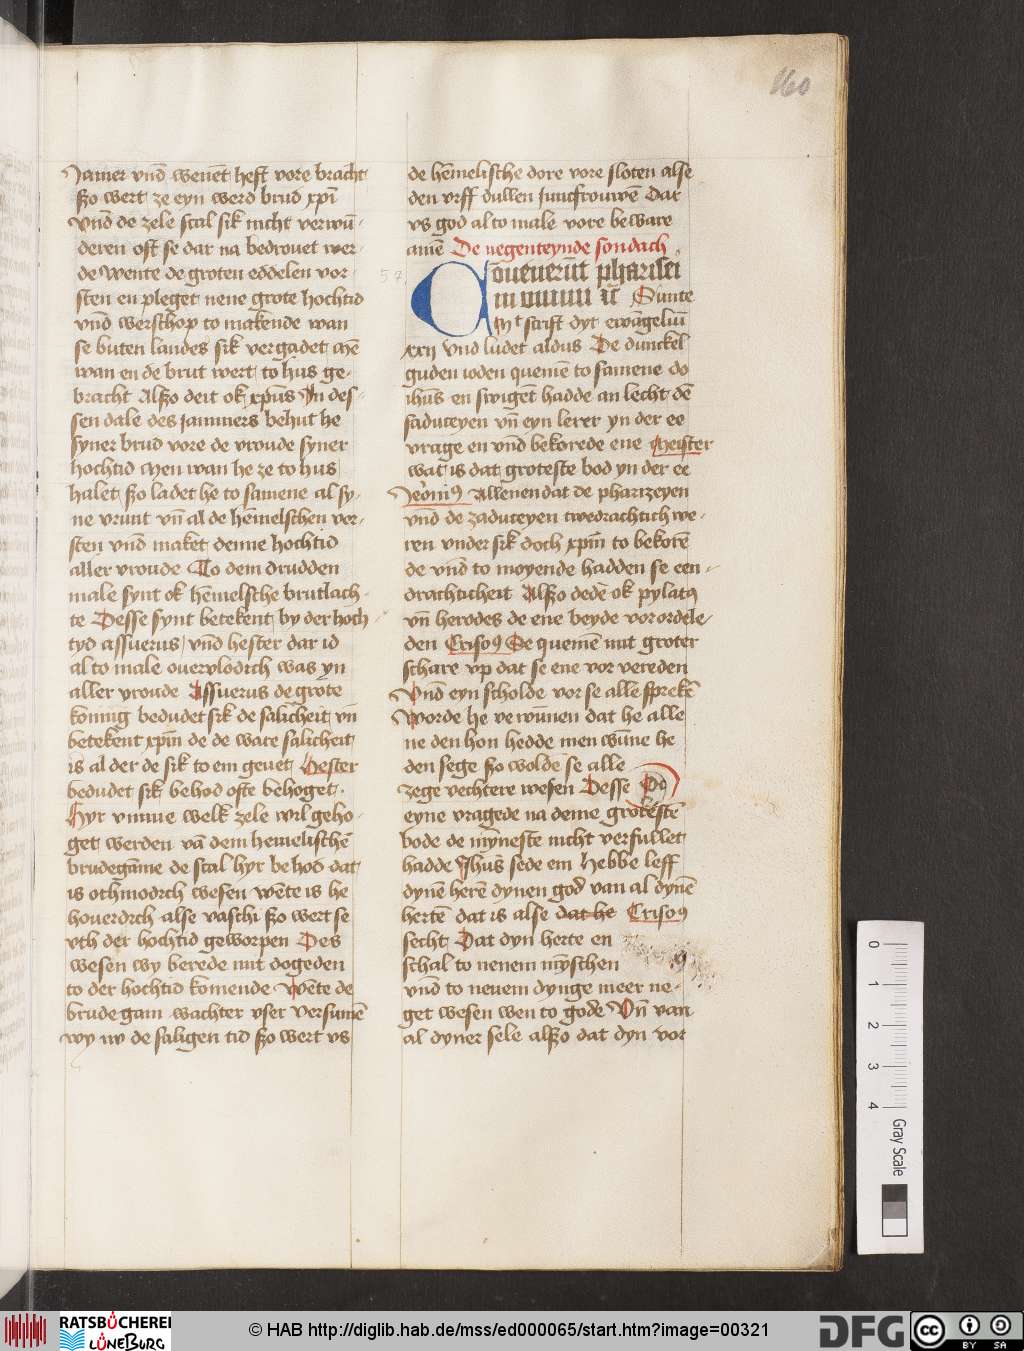 160
Jamer vnd wenet heft vore bracht
szo wert ze eyn werd brud xpi
Vnd de zele scal sik nicht verwū-
deren oft se dar na bedrouet wer-
de Wente de groten eddelen vor-
sten en pleget nene grote hochtid
vnd werschop to makende wan
se buten landes sik vergadet mē
wan en de brut wert to hus ge-
bracht Alszo deit ok xpus In des-
sen dale des jammers behut he
syner brud vore de vroude syner
hochtid Men wan he ze to hus
halet szo ladet he to samene al sy-
ne vrunt vn̄ al de hēmelschen vor-
sten vnd maket denne hochtid
aller vroude To dem drudden
male synt ok hēmelsche brutlach-
te Desse synt betekent by der hoch-
tyd assuerus vnd hester dar id
al to male ouervlodich was yn
aller vroude Assuerus de grote
konnig bedudet sik de salicheit vn̄
betekent xpm de de ware salicheit
is al der de sik to em geuet Hester
bedudet sik behod ofte behoget.
Hyr vmme welk zele wil geho-
get werden vā dem hemelischē
brudegāme de scal hyr behod dat
is othmodich wesen wēte is he
houerdich alse vaschi szo wert se
vth der hochtid geworpen Des
wesen wy berede mit dogeden
to der hochtid komende Wēte de
brudegam wachter vser Versumē
wy nv de saligen tid szo wert vs
de hēmelische dore vore sloten alse
den vyff dullen juncfrouwē Dar
vs god al to male vore beware
amē De negenteynde sondach
57
Conuenerūt pharisei
in vnum ꝛc̄ Sunte
Mͭ scrift dyt ewāgeliū
xxij Vnd ludet aldus De dunckel
guden ioden quemē to samene do
ihus en swigēt hadde an lecht dē
saduceyen vn̄ eyn lerer yn der ee
vrage en vnd bekorede ene Meister
wat is dat groteste bod yn der ee
Jeronius Allenendat de pharizeyen
vnd de zaduceyen twedrachtich we-
ren vnder sik doch xpm to bekorē
de vnd to moyende hadden se een-
drachticheit Alszo dedē ok pylatus
vn̄ herodes de ene beyde vorordele-
den Crisos De quemē mit groter
schare vp dat se ene vor vereden
Vnd eyn scholde vor se alle sprekē
Worde he verwūnen dat he alle
ne den hon hedde men wūne he
den sege szo wolde se alle
zege vechtere wesen Desse Do
eyne vragede na deme grotestē
bode de mȳneste nicht verfullet
hadde Jhus sede em Hebbe leff
dynē herē dynen god van al dynē
herte dat is alse dat he Crisos
secht Dat dyn herte en
schal to nenem mȳschen
vnd to nenem dynge meer ne-
get wesen wen to gode Vn̄ van
al dyner sele alszo dat dyn vor
0
1
2
3
4
Gray Scale
RATSBÜCHEREI
LÜNEBURG
© HAB http://diglib.hab.de/mss/ed000065/start.htm?image=00321
DFG
cc
BY SA